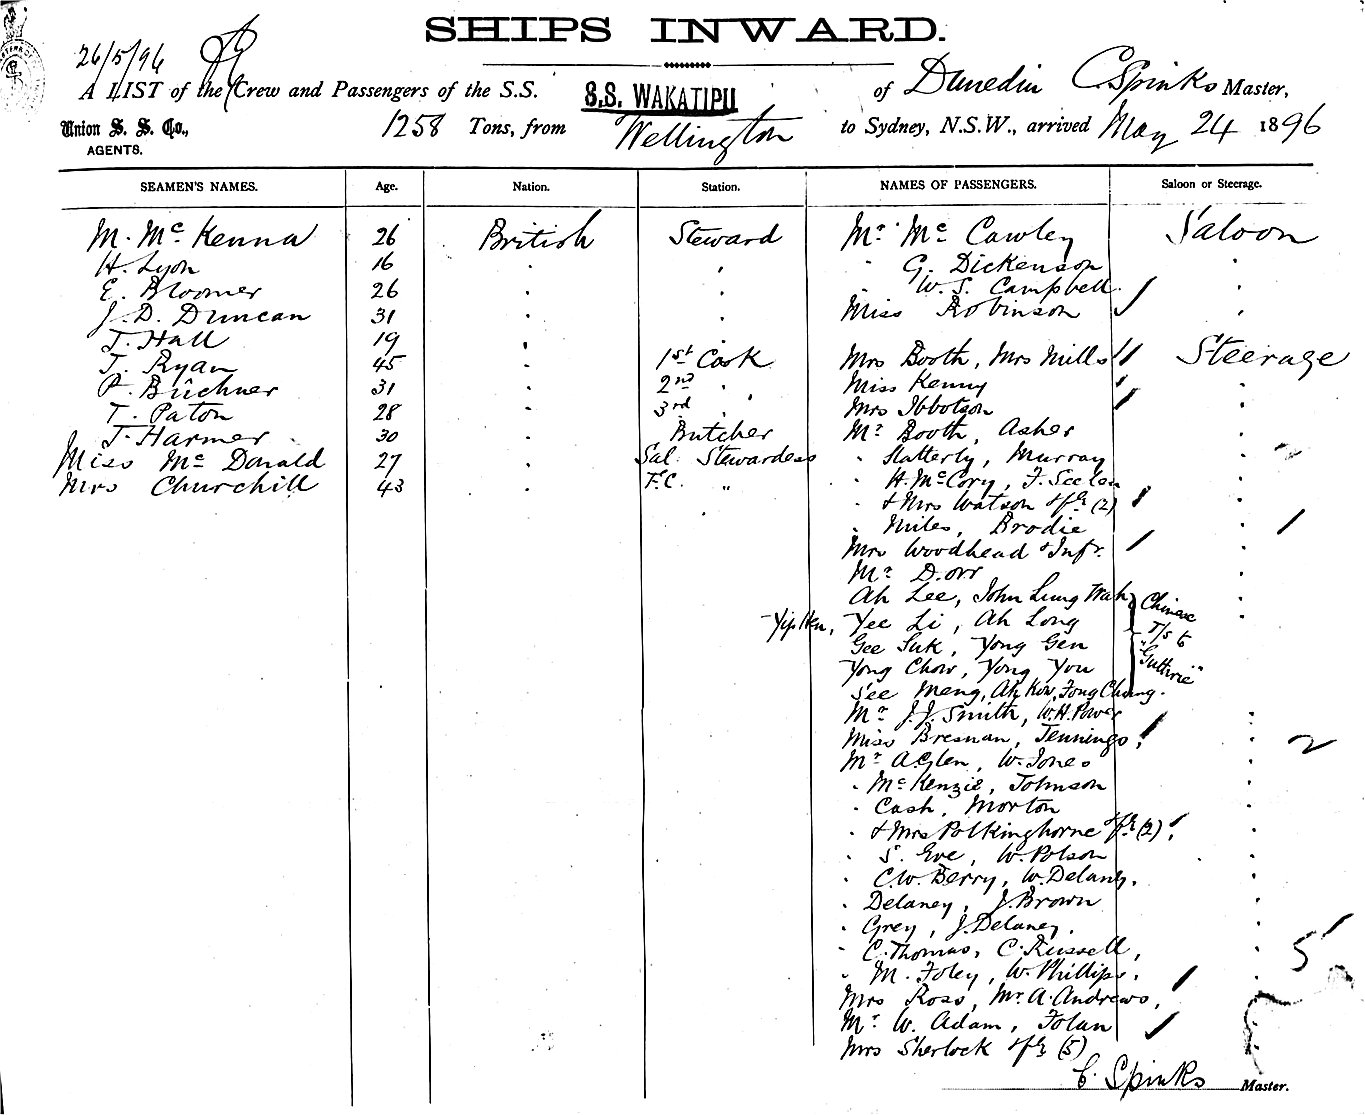 SHIPS INWARD.
26/5/96
A LIST of the Crew and Passengers of the S.S. S.S. WAKATIPU of Dunedin C Spinks Master,
Union S. S. Co., 1258 Tons, from Wellington to Sydney, N.S.W., arrived May 24 1896
AGENTS.
SEAMEN'S NAMES. Age. Nation. Station. NAMES OF PASSENGERS. Saloon or Steerage.
M. McKenna 26 British Steward Mr McCawley Saloon
H. Lyon 16 G. Dickenson
E. Bloomer 26 W. S. Campbell
J. D. Duncan 31 Miss Robinson
T. Hall 19
T. Ryan 45 1st Cook Mrs Booth, Mrs Mills Steerage
P. Büchner 31 2nd " Miss Kenny
T. Paton 28 3rd " Mrs Ibbotson
J. Harmer 30 Butcher Mr Booth, Asher
Miss McDonald 27 Sal Stewardess " Slatterly, Murray
Mrs Churchill 43 F.C. " " H. McCory, F.
& Mrs Watson & fy (2)
" Miles, Brodie
Mrs Woodhead & Inft.
Mr D. Orr
Ah Lee, John Lung Wah, Chinese
Yip Hen, Yee Li, Ah Long T/s to
Gee Suk, Yong Gen "Guthrie"
Yong Chow, Yong You
See Meng, Ah Kow, Fong Chung.
Mr J. J. Smith, W. H. Power
Miss Bresnan, Jennings, 2
Mr A Glen, W. Jones
" McKenzie, Johnson
" Cash, Morton
" & Mrs Polkinghorne & fy (2)
" S. Eve, W. Polson
" C. W. Berry, W. Delany,
" Delaney, J. Brown
" Grey, J. Delaney,
" C. Thomas, C. Russell, 5
" M. Foley, W. Phillips,
Mrs Ross, Mr A. Andrews,
Mr W. Adam, Folan
Mrs Sherlock & fy (5)
C. Spinks Master.